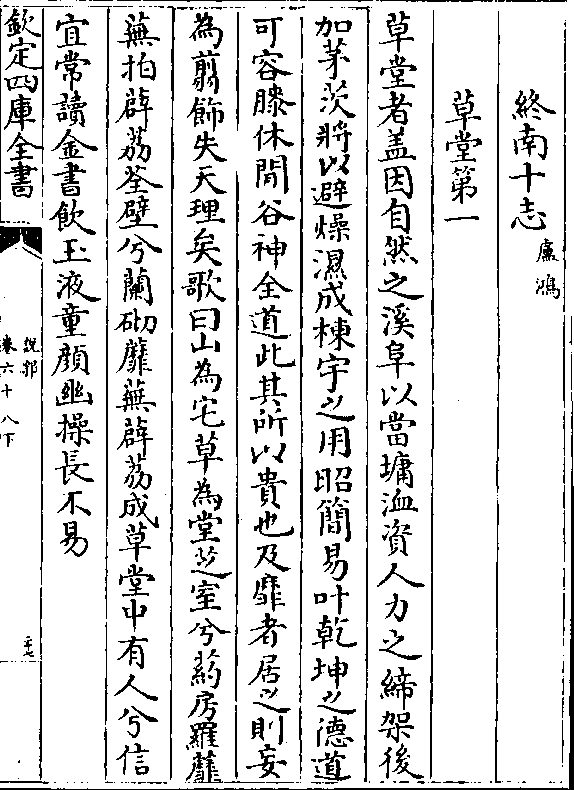 終南十志
盧鴻
草堂第一
草堂者盖因自然之溪阜以當墉洫資人力之締架後
加茅茨將以避燥濕成棟宇之用昭簡易叶乾坤之德道
可容膝休閒谷神全道此其所以貴也及靡者居之則妄
為翦飾失天理矣歌曰山為宅草為堂芝室兮葯房羅蘼
蕪拍薜荔荃壁兮蘭砌蘼蕪薜荔成草堂中有人兮信
宜常讀金書飲玉液童顔幽操長不易
欽定四庫全書
說郛
卷六十八下
三七